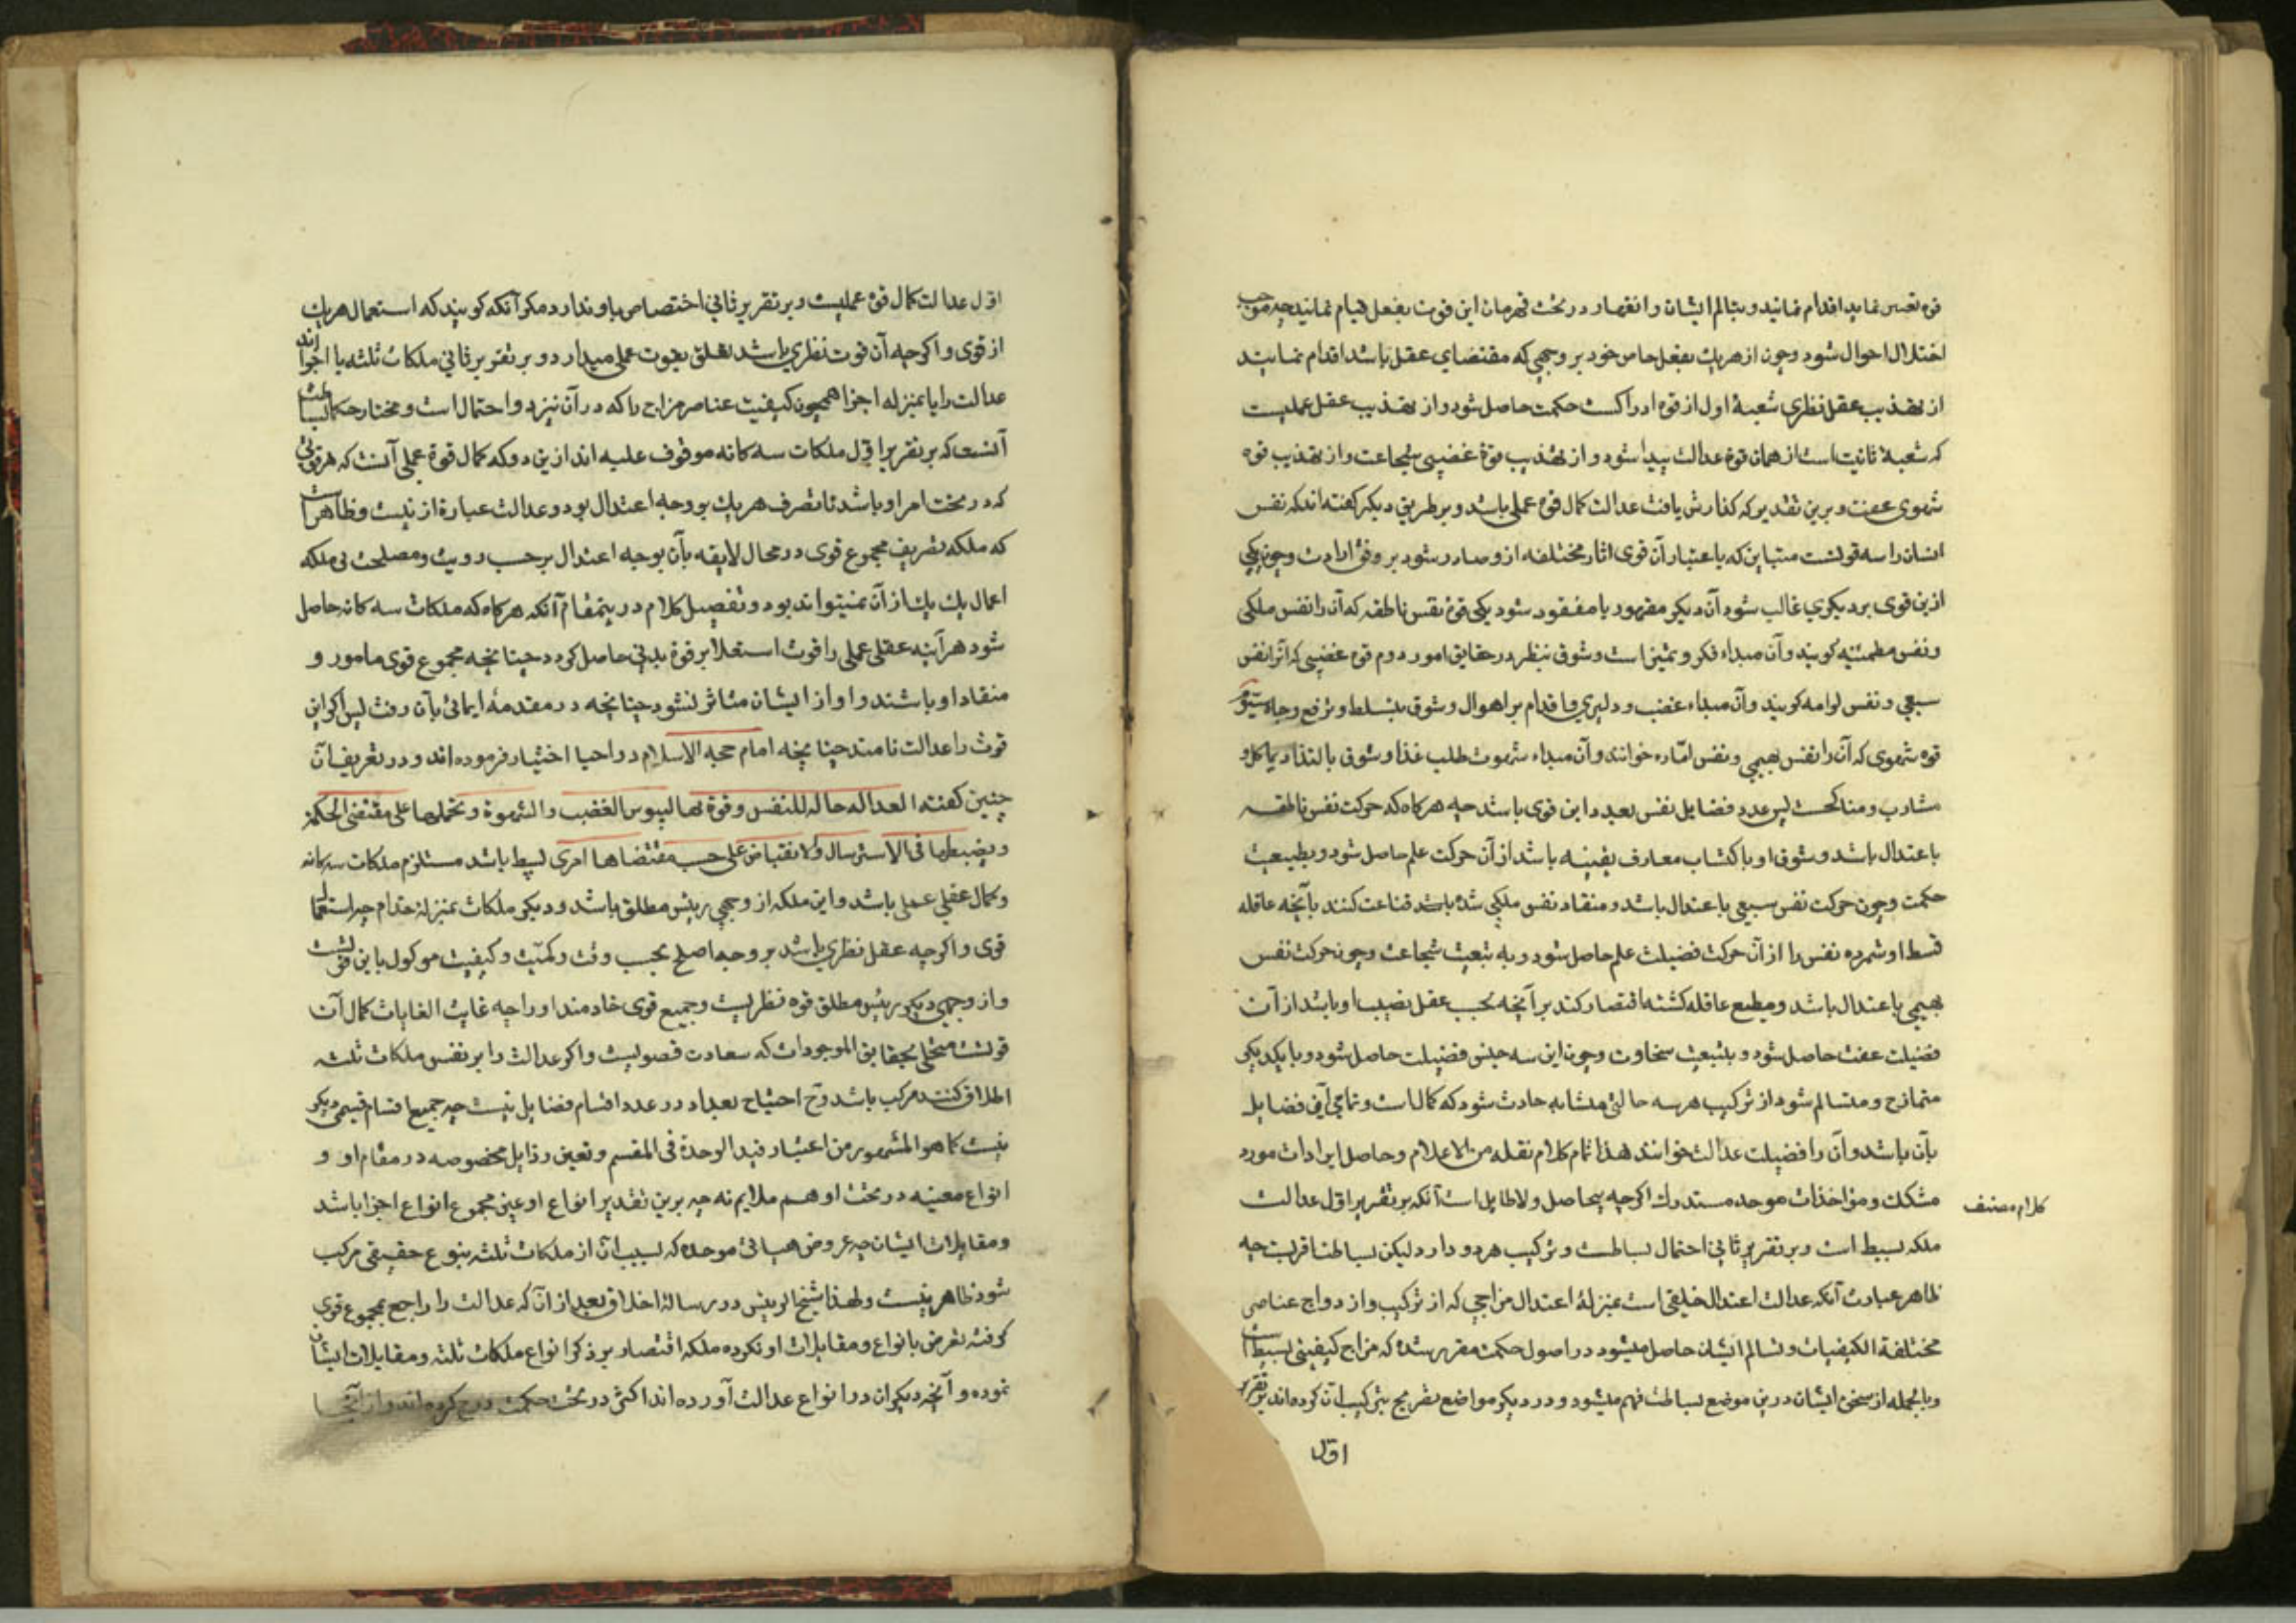 قوه تعیین نماید اقدام نمایند و بتسالم ایشان و انقهار در تحت قهرمان این قوت بفعل قیام نمایند چه موجب
اختلال احوال شود و چون از هریك بفعل خاص خود بر وجهی که مقتضای عقل باشد اقدام نمایند
از تهذیب عقل نظری شعبهٔ اول از قوه ادراکست حکمت حاصل شود و از تهذیب عقل عملیست
که شعبهٔ ثانیت است از همان قوه عدالت پیدا شود و از تهذیب قوهٔ غضبی شجاعت و از تهذیب قوه
شهوی عفت و برین تقدیر که گذارش یافت عدالت کمال قوه عملی باشد و بر طریق دیگر گفته اند که نفس
انسان را سه قوتست متباین که باعتبار آن قوی اثار مختلفه ازو صادر شود بر وفق ارادت و چون یکی
ازین قوی بر دیگری غالب شود آن دیگر مقهور یا مفقود شود یکی قوهٔ نفس ناطقه که آن را نفس ملکی
و نفس مطمئنه گویند و آن مبداء فکر و تمییز است و شوق بنظر در حقایق امور دوم قوه غضبی که آنرا نفس
سبعی و نفس لوامه گویند و آن مبداء غضب و دلیری و اقدام بر اهوال و شوق بتسلط و ترفع و جاه سیوم
قوه شهوی که آن را نفس بهیمی و نفس اماره خوانند و آن مبداء شهوت طلب غذا و شوق بالتذاذ بمآکل و
مشارب و مناکحت پس عدد فضایل نفس بعدد این قوی باشد چه هرگاه که حرکت نفس ناطقه
باعتدال باشد و شوق او باکتساب معارف یقینیه باشد از آن حرکت علم حاصل شود و بطبیعت
حکمت و چون حرکت نفس سبعی باعتدال باشد و منقاد نفس ملکی شده باشد قناعت کنند بآنچه عاقله
قسط او شمرده نفس را از آن حرکت فضیلت علم حاصل شود و به تبعیت شجاعت و چون حرکت نفس
بهیمی باعتدال باشد و مطیع عاقله گشته اقتصار کند بر آنچه بحسب عقل نصیب او باشد از آن
فضیلت عفت حاصل شود و بتبعیت سخاوت و چون این سه جنس فضیلت حاصل شود و با یکدیگر
متمازج و متسالم شود از ترکیب هر سه حالتی متشابه حادث شود که کمال است و تمامی این فضایل
بآن باشد و آن را فضیلت عدالت خوانند هذا تمام کلام نقله من الاعلام و حاصل ایرادات مورد
مشکك و مؤاخذات موحده مستدرك اگرچه بیحاصل و لاطایل است آنکه بر تقریر اول عدالت
کلام مصنف
ملکه بسیط است و بر تقریر ثانی احتمال بساطت و ترکیب هردو دارد لیکن بساطتنا قربست چه
ظاهر عبارت آنکه عدالت اعتدال خلقی است بمنزلهٔ اعتدال مزاجی که از ترکیب و ازدواج عناصر
مختلفة الکیفیات و تسالم ایشان حاصل میشود در اصول حکمت مقرر شده که مزاج کیفیتی بسیط است
و بالجمله از سخن ایشان درین موضع بساطت فهم میشود و در دیگر مواضع تصریح بترکیب آن کرده اند بر تقریر
اول
اول عدالت کمال قوه عملیست و بر تقریر ثانی اختصاص باو ندارد مگر آنکه گویند که استعمال هریك
از قوی و اگرچه آن قوت نظری باشد تعلق بقوت عملی میدارد و بر تقریر ثانی ملکات ثلثه یا اجزا اند
عدالت را یا بمنزله اجزا همچون کیفیت عناصر مزاج را که در آن نیز دو احتمال است و مختار حکما بساطت
آنست که بر تقریر اول ملکات سه کانه موقوف علیه اند ازین دو که کمال قوهٔ عملی آنست که هر قوتی
که در تحت امر او باشد تا تصرف هریك بر وجه اعتدال بود و عدالت عبارة از نیست و ظاهر است
که ملکه تصریف مجموع قوی در محال لایقه بآن بوجه اعتدال بر حسب رویت و مصلحت بی ملکه
اعمال یك یك از آن نمیتواند بود و تفصیل کلام درینمقام آنکه هرگاه که ملکات سه کانه حاصل
شود هر آینه عقلی عملی را قوت استعلا بر قوة بدنی حاصل گردد چنانچه مجموع قوی مامور و
منقاد او باشند و او از ایشان متاثر نشود چنانچه در مقدمه ایمائی بآن رفت پس اگر این
قوت را عدالت نامند چنانچه امام حجه الاسلام در احیا اختیار فرموده اند و در تعریف آن
چنین گفته العداله حاله للنفس وقوة بها لیسوس الغضب والشهوة وتحملها علی مقتضی الحکمة
ویضبطها فی الاسترسال والانقباض علی حسب مقتضاها امری بسیط باشد مستلزم ملکات سه کانه
و کمال عقلی عملی باشد و این ملکه از وجهی رییس مطلق باشد و دیگر ملکات بمنزلهٔ خدام چه استعمال
قوی و اگرچه عقل نظری باشد بر وجه اصلح بحسب وقت و کمیت و کیفیت موکول باین قوتست
و از وجهی دیگر رییس مطلق قوه نظریست و جمیع قوی خادمند او را چه غایت الغایات کمال آن
قوتست متحلی بحقایق الموجودات که سعادت قصویست و اگر عدالت را بر نفس ملکات ثلثه
اطلاق کنند مرکب باشد و آنچ احتیاج بعداد در عدد اقسام فضایل نیست چه جمیع اقسام قسیمی دیگر
نیست کما هو المشهور من اعتبار قید الوحدة فی المقسم و تعین رذایل مخصوصه در مقام او و
انواع معینه در تحت او هم ملایم نه چه برین تقدیر انواع او عین مجموع انواع اجزا باشد
و مقابلات ایشان چه عروض هیاتی موحده که بسبب آن از ملکات ثلثه بنوع حقیقی مرکب
شود ظاهر نیست و لهذا شیخ الرییس در رسالهٔ اخلاق بعد از آن که عدالت را راجع بمجموع قوی
گرفته تعرض بانواع و مقابلات او نکرده بلکه اقتصار بر ذکر انواع ملکات ثلثه و مقابلات ایشان
نموده و آنچه دیگران در انواع عدالت آورده اند اکثر در تحت حکمت درج کرده اند و از آنجا